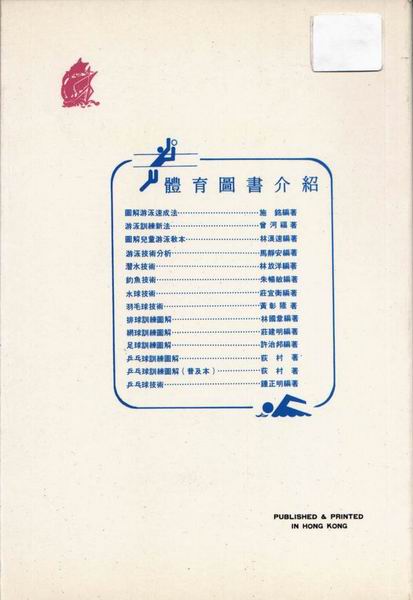 體育圖書介紹
圖解游泳速成法⋯⋯⋯⋯施銘編著
游泳訓練新法⋯⋯⋯⋯曾河福著
圖解兒童游泳教本⋯⋯⋯⋯林漢達編著
游泳技術分析⋯⋯⋯⋯馬靜安編著
潛水技術⋯⋯⋯⋯林放洋編著
釣魚技術⋯⋯⋯⋯朱暢敏編著
水球技術⋯⋯⋯⋯莊宜衡編著
羽毛球技術⋯⋯⋯⋯黃彰雁著
排球訓練圖解⋯⋯⋯⋯林國章編著
網球訓練圖解⋯⋯⋯⋯莊建明編著
足球訓練圖解⋯⋯⋯⋯許治邦編著
乒乓球訓練圖解⋯⋯⋯⋯荻村著
乒乓球訓練圖解（普及本）⋯⋯⋯⋯荻村著
乒乓球技術⋯⋯⋯⋯鍾正明編著
PUBLISHED & PRINTED
IN HONG KONG